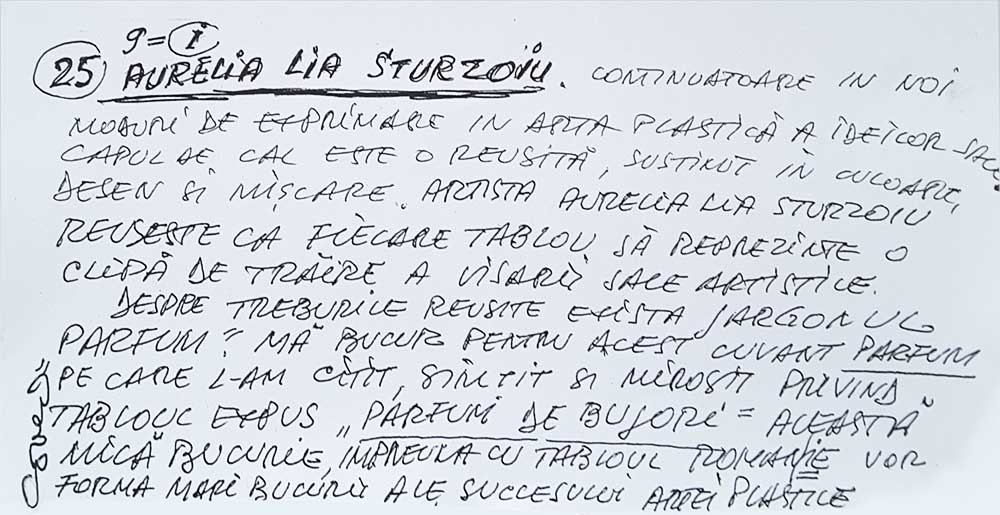 g = i
25 AURELIA LIA STURZOIU. CONTINUATOARE IN NOI
MODURI DE EXPRIMARE IN ARTA PLASTICĂ A IDEILOR SALE.
CAPUL DE CAL ESTE O REUSITĂ, SUSTINUT IN CULOARE,
DESEN SI MIȘCARE. ARTISTA AURELIA LIA STURZOIU
REUSESTE CA FIECARE TABLOU SĂ REPREZINTE O
CLIPĂ DE TRĂIRE A VISARII SALE ARTISTICE.
DESPRE TREBURILE REUSITE EXISTA JARGONUL
PARFUM". MĂ BUCUR PENTRU ACEST CUVANT PARFUM
PE CARE L-AM CITIT, SIMTIT SI MIROSIT PRIVIND
TABLOUL EXPUS „PARFUM DE BUJORI" = ACEASTĂ
MICĂ BUCURIE, IMPREUNA CU TABLOUL ROMANIE VOR
FORMA MARI BUCURII ALE SUCCESULUI ARTEI PLASTICE